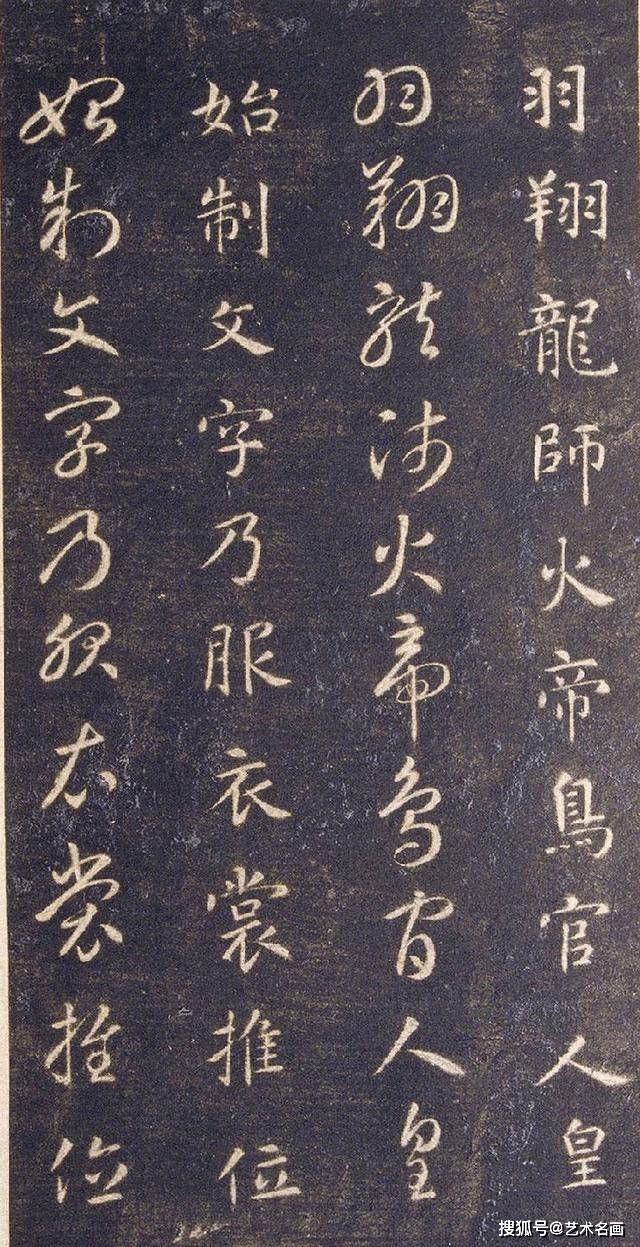 羽翔龍師火帝鳥官人皇
羽翔龍師火帝鳥官人皇
始制文字乃服衣裳推位
始制文字乃服衣裳推位
搜狐号@艺术名画